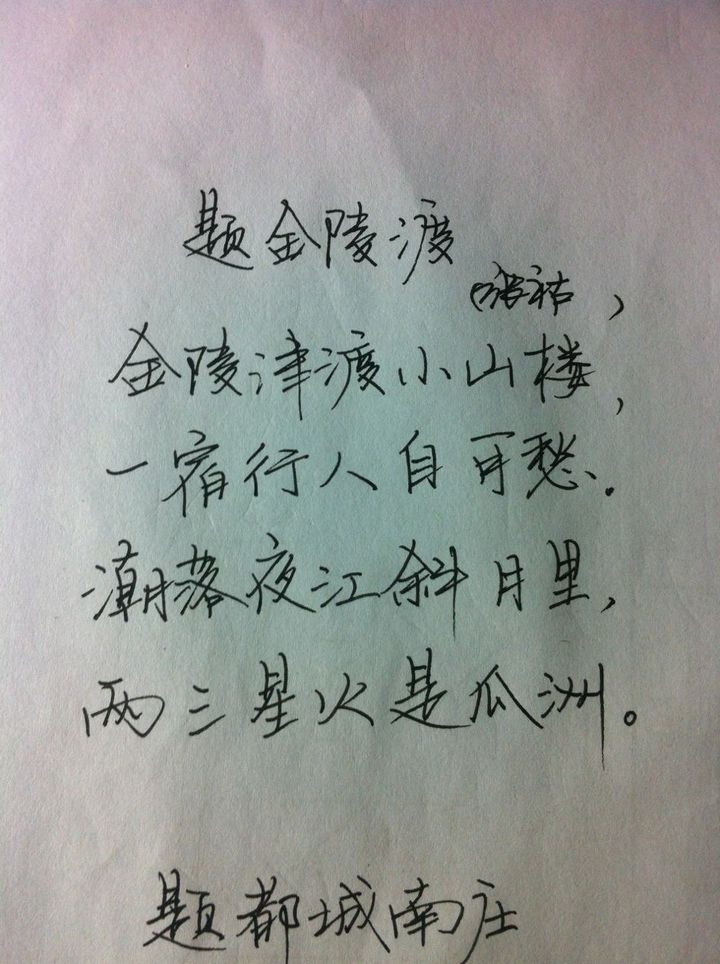 题金陵渡
（张祜）
金陵津渡小山楼，
一宿行人自可愁．
潮落夜江斜月里，
两三星火是瓜洲。
题都城南庄